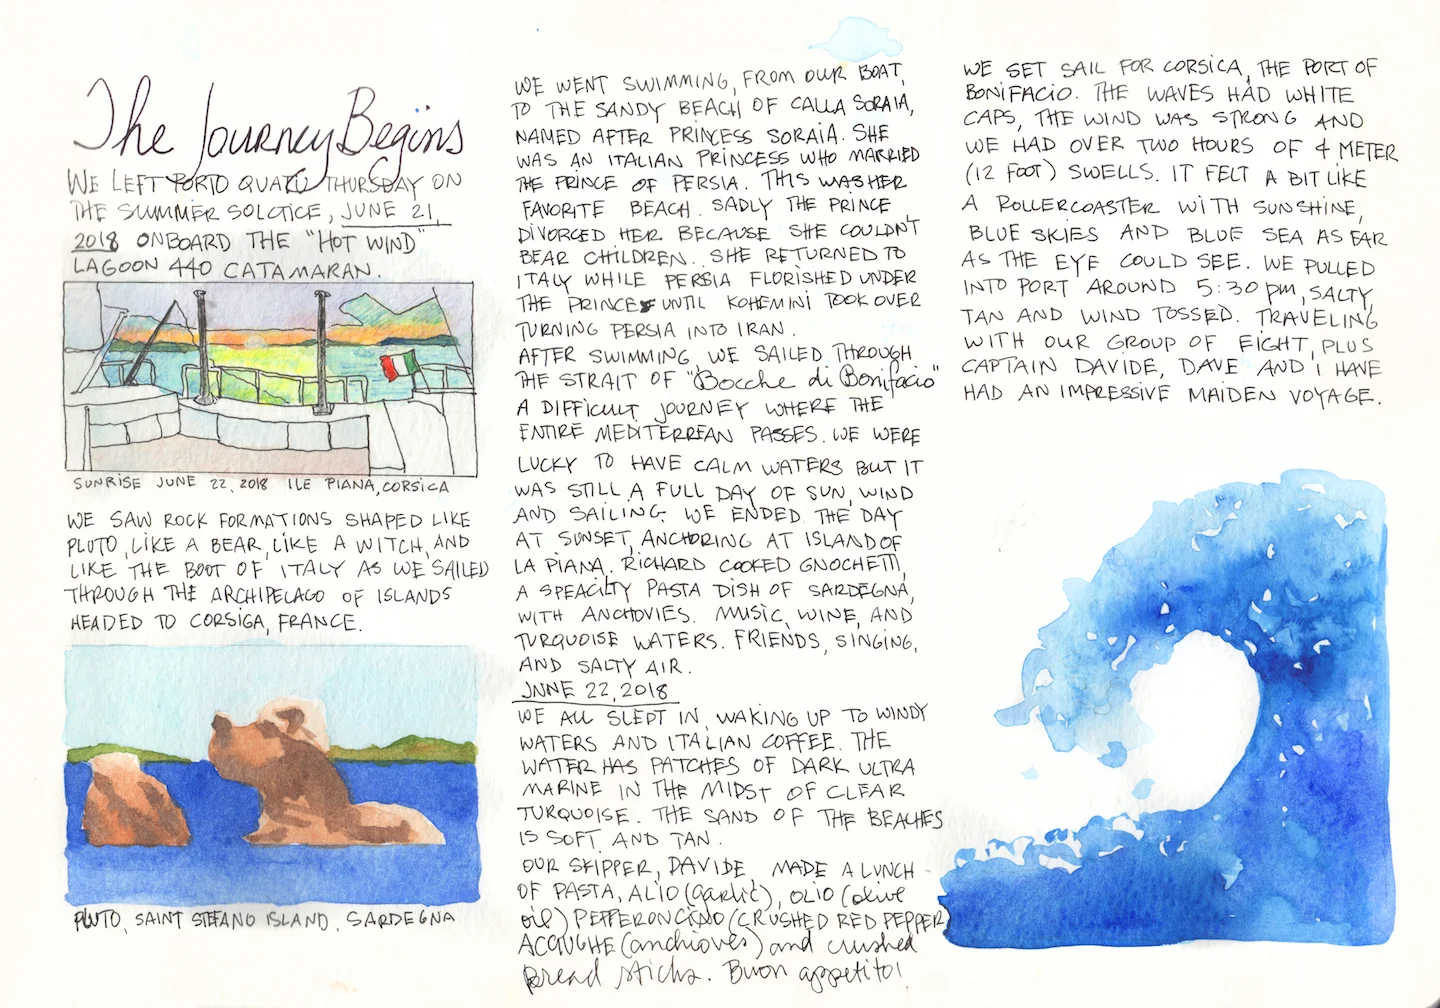 The Journey Begins
WE LEFT PORTO QUATU THURSDAY ON
THE SUMMER SOLCTICE, JUNE 21,
2018 ONBOARD THE "HOT WIND"
LAGOON 440 CATAMARAN.
SUNRISE JUNE 22, 2018 ILE PIANA, CORSICA
WE SAW ROCK FORMATIONS SHAPED LIKE
PLUTO, LIKE A BEAR, LIKE A WITCH, AND
LIKE THE BOOT OF ITALY AS WE SAILED
THROUGH THE ARCHIPELAGO OF ISLANDS
HEADED TO CORSIGA, FRANCE.
PLUTO, SAINT STEFANO ISLAND, SARDEGNA
WE WENT SWIMMING, FROM OUR BOAT,
TO THE SANDY BEACH OF CALLA SORAIA,
NAMED AFTER PRINCESS SORAIA. SHE
WAS AN ITALIAN PRINCESS WHO MARRIED
THE PRINCE OF PERSIA. THIS WAS HER
FAVORITE BEACH. SADLY THE PRINCE
DIVORCED HER BECAUSE SHE COULDN'T
BEAR CHILDREN. SHE RETURNED TO
ITALY WHILE PERSIA FLORISHED UNDER
THE PRINCE UNTIL KOHEMINI TOOK OVER
TURNING PERSIA INTO IRAN.
AFTER SWIMMING, WE SAILED THROUGH
THE STRAIT OF "Bocche di Bonifacio"
A DIFFICULT JOURNEY WHERE THE
ENTIRE MEDITERREAN PASSES. WE WERE
LUCKY TO HAVE CALM WATERS BUT IT
WAS STILL A FULL DAY OF SUN, WIND
AND SAILING. WE ENDED THE DAY
AT SUNSET, ANCHORING AT ISLAND OF
LA PIANA. RICHARD COOKED GNOCHETTI,
A SPEACILTY PASTA DISH OF SARDEGNA,
WITH ANCHOVIES. MUSIC, WINE, AND
TURQUOISE WATERS. FRIENDS, SINGING,
AND SALTY AIR.
JUNE 22, 2018
WE ALL SLEPT IN, WAKING UP TO WINDY
WATERS AND ITALIAN COFFEE. THE
WATER HAS PATCHES OF DARK ULTRA
MARINE IN THE MIDST OF CLEAR
TURQUOISE. THE SAND OF THE BEACHES
IS SOFT AND TAN.
OUR SKIPPER, DAVIDE, MADE A LUNCH
OF PASTA, ALIO (garlic), OLIO (olive
oil) PEPPERONCINO (CRUSHED RED PEPPER)
ACCIUGHE (anchioves) and crushed
bread sticks. Buon appetito!
WE SET SAIL FOR CORSICA, THE PORT OF
BONIFACIO. THE WAVES HAD WHITE
CAPS, THE WIND WAS STRONG AND
WE HAD OVER TWO HOURS OF 4 METER
(12 FOOT) SWELLS. IT FELT A BIT LIKE
A ROLLERCOASTER WITH SUNSHINE,
BLUE SKIES AND BLUE SEA AS FAR
AS THE EYE COULD SEE. WE PULLED
INTO PORT AROUND 5:30 pm, SALTY,
TAN AND WIND TOSSED. TRAVELING
WITH OUR GROUP OF EIGHT, PLUS
CAPTAIN DAVIDE, DAVE AND I HAVE
HAD AN IMPRESSIVE MAIDEN VOYAGE.